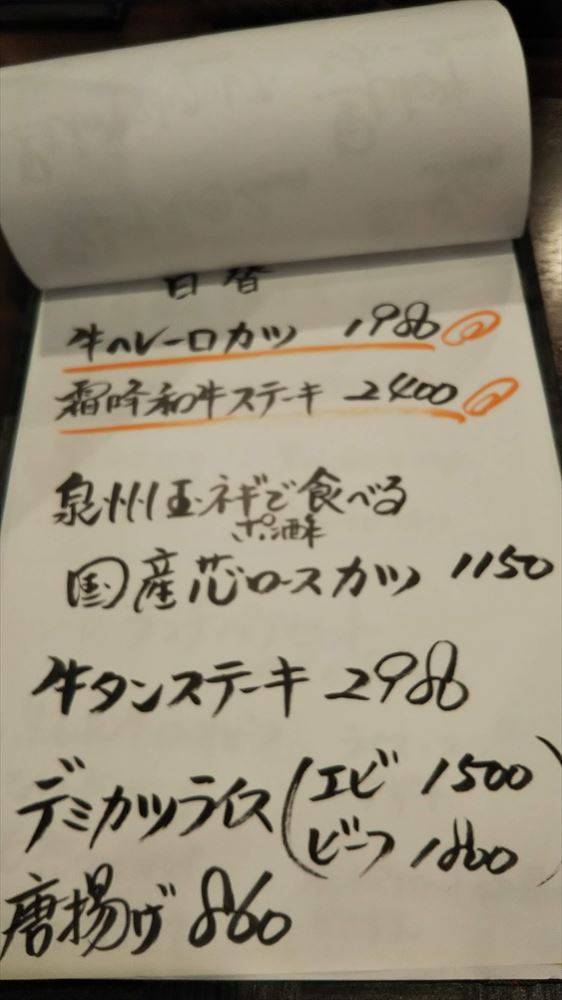 日替
牛ヘレ一口カツ 1980
霜降和牛ステーキ 2400
泉州玉ネギで食べる
ポン酢
国産芯ロースカツ 1150
牛タンステーキ 2980
デミカツライス(エビ 1500
ビーフ 1800)
唐揚げ 860